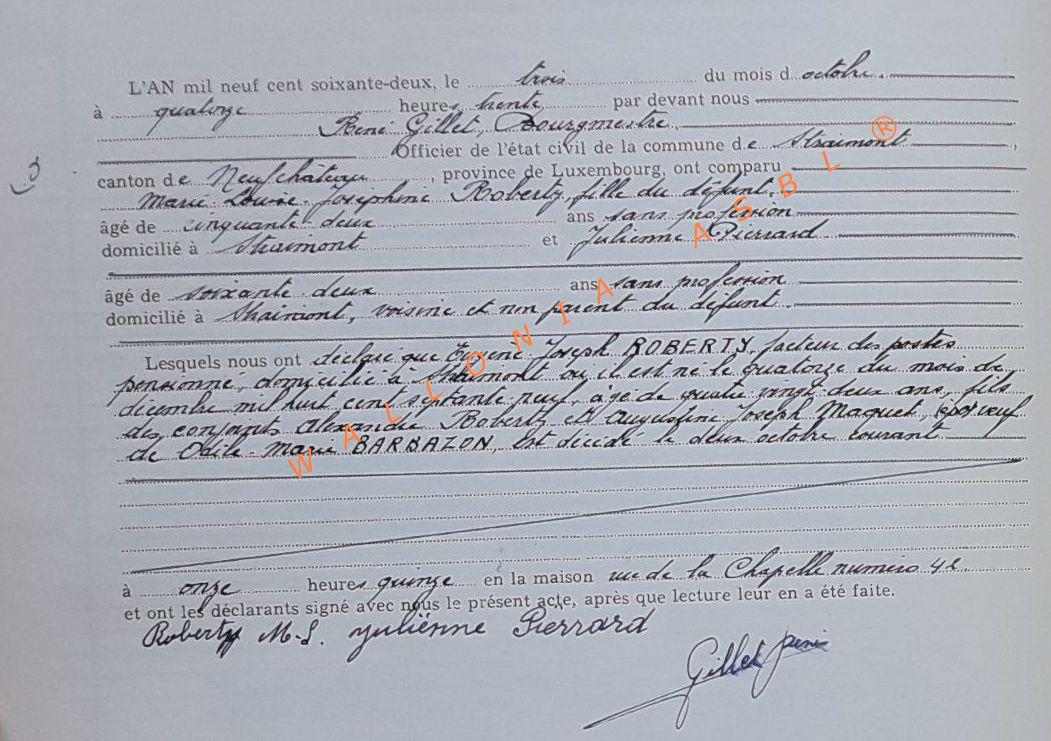 L'AN mil neuf cent soixante-deux, le trois du mois d octobre.
à quatorze heures trente par devant nous
René Gillet, Bourgmestre
Officier de l'état civil de la commune de Straimont,
3
canton de Neufchâteau, province de Luxembourg, ont comparu
Marie Louise Joséphine Roberty, fille du défunt,
âgé de cinquante deux ans sans profession
domicilié à Straimont et Julienne Pierrard
âgé de soixante deux ans sans profession
domicilié à Straimont, voisine et non parent du défunt
Lesquels nous ont déclaré que Eugène Joseph ROBERTY, facteur des postes
pensionné, domicilié à Straimont où il est né le quatorze du mois de
décembre mil huit cent septante neuf, âgé de quatre vingt deux ans, fils
des conjoints Alexandre Roberty et Augustine Joseph Maquet, veuf
de Odile Marie BARBAZON, est décédé le deux octobre courant
à onze heures quinze en la maison rue de la Chapelle numéro
et ont les déclarants signé avec nous le présent acte, après que lecture leur en a été faite.
Roberty M-L. Julienne Pierrard
Gillet René
WALLONIA ASBL ®